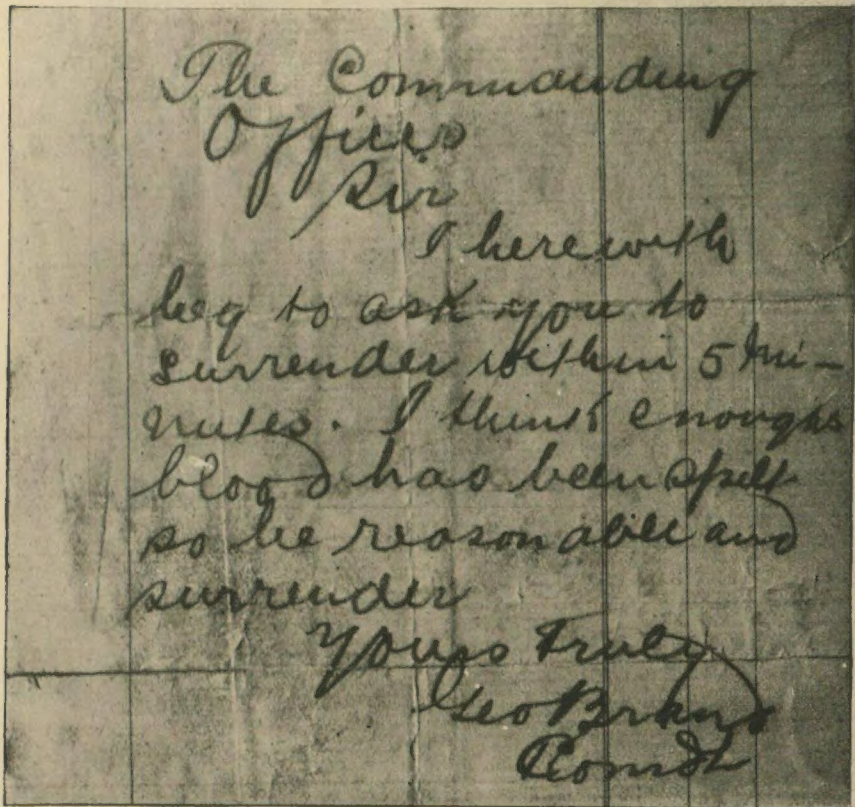 The Commanding
Officer
Sir
I herewith
beg to ask you to
surrender within 5 Mi-
nutes. I think enough
blood has been spilt
so be reasonable and
surrender
Yours Truly
Geo Brand
Comdt